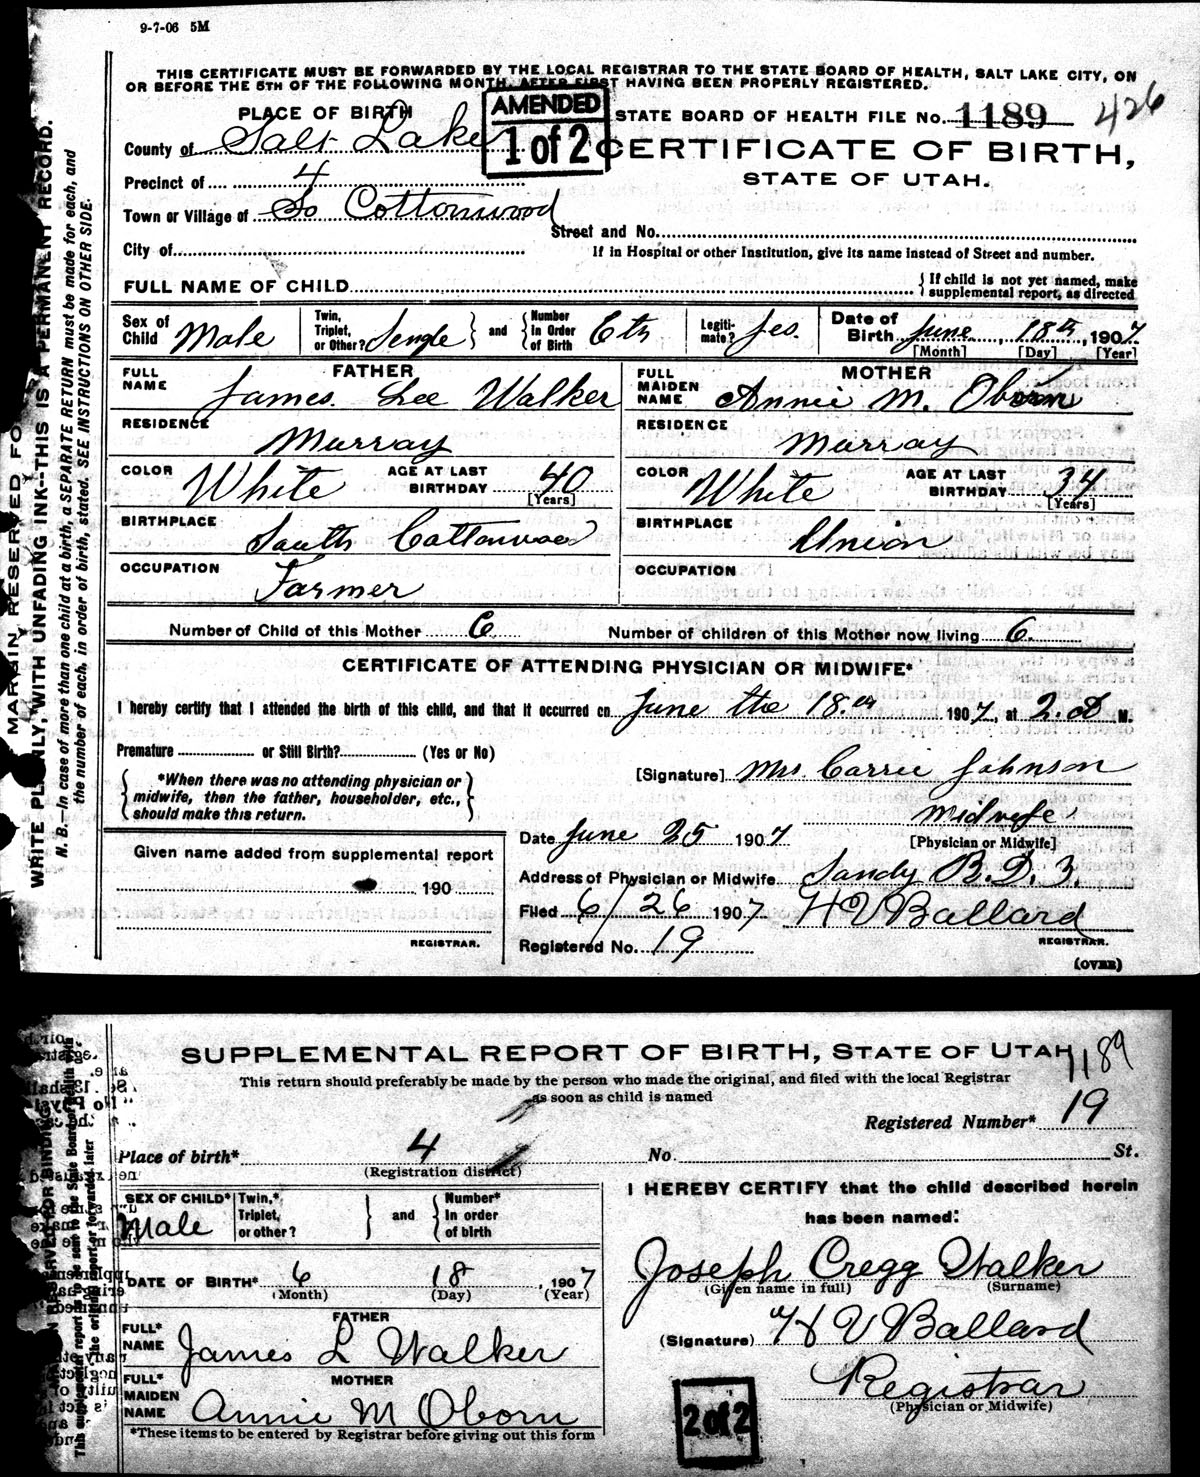 9-7-06 5M
THIS CERTIFICATE MUST BE FORWARDED BY THE LOCAL REGISTRAR TO THE STATE BOARD OF HEALTH, SALT LAKE CITY, ON
OR BEFORE THE 5TH OF THE FOLLOWING MONTH, AFTER FIRST HAVING BEEN PROPERLY REGISTERED.
MARGIN RESERVED FO
WRITE PLAINLY, WITH UNFADING INK--THIS IS A PERMANENT RECORD.
N. B.—In case of more than one child at a birth, a SEPARATE RETURN must be made for each, and
the number of each, in order of birth, stated. SEE INSTRUCTIONS ON OTHER SIDE.
PLACE OF BIRTH
AMENDED
1 of 2
STATE BOARD OF HEALTH FILE No. 1189 426
County of Salt Lake
CERTIFICATE OF BIRTH,
STATE OF UTAH.
Precinct of 4
Town or Village of So Cottonwood
Street and No.
City of
If in Hospital or other Institution, give its name instead of Street and number.
FULL NAME OF CHILD
If child is not yet named, make
supplemental report, as directed
Sex of Child Male
Twin, Triplet, or Other? Single and Number In Order of Birth 6th
Legitimate? yes
Date of Birth June 18th, 1907
[Month] [Day] [Year]
FATHER
FULL NAME James Lee Walker
RESIDENCE Murray
COLOR White AGE AT LAST BIRTHDAY 40 [Years]
BIRTHPLACE South Cottonwood
OCCUPATION Farmer
MOTHER
FULL MAIDEN NAME Annie M. Oborn
RESIDENCE Murray
COLOR White AGE AT LAST BIRTHDAY 34 [Years]
BIRTHPLACE Union
OCCUPATION
Number of Child of this Mother 6 Number of children of this Mother now living 6.
CERTIFICATE OF ATTENDING PHYSICIAN OR MIDWIFE*
I hereby certify that I attended the birth of this child, and that it occurred on June the 18.th 1907, at 2. M.
Premature or Still Birth? (Yes or No)
*When there was no attending physician or
midwife, then the father, householder, etc.,
should make this return.
[Signature] Mrs Carrie Johnson
midwife
[Physician or Midwife]
Given name added from supplemental report
190
REGISTRAR.
Date June 25 1907
Address of Physician or Midwife Sandy R.D. 3.
Filed 6/26 1907 H V Ballard
REGISTRAR.
Registered No. 19
(OVER)
SUPPLEMENTAL REPORT OF BIRTH, STATE OF UTAH 1189
This return should preferably be made by the person who made the original, and filed with the local Registrar
as soon as child is named
Registered Number* 19
Place of birth* 4 No. St.
(Registration district)
SEX OF CHILD* Male
Twin,* Triplet, or other? and Number* In order of birth
DATE OF BIRTH* 6 18, 1907
(Month) (Day) (Year)
FATHER
FULL* NAME James L Walker
MOTHER
FULL* MAIDEN NAME Annie M Oborn
*These items to be entered by Registrar before giving out this form
I HEREBY CERTIFY that the child described herein
has been named:
Joseph Cregg Walker
(Given name in full) (Surname)
(Signature) H V Ballard
Registrar
(Physician or Midwife)
2 of 2